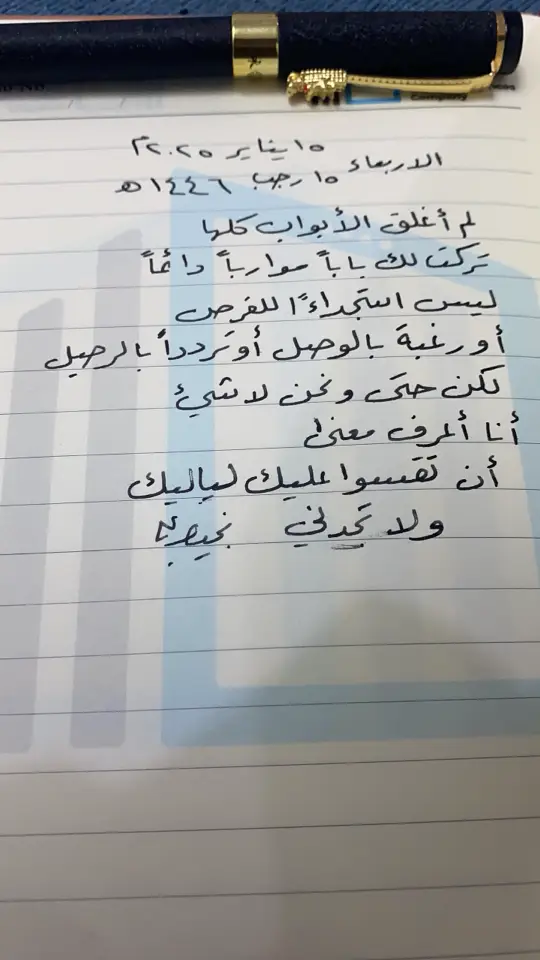 ١٥ يناير ٢٠٢٥م
الاربعاء ١٥ رجب ١٤٤٦ هـ
لم أغلق الأبواب كلها
تركت لك باباً موارباً دائماً
ليس استجداءًا للفرص
أو رغبة بالوصل أو تردداً بالرحيل
لكن حتى ونحن لا شيئ
أنا أعرف معنى
أن تقسوا عليك لياليك
ولا تجدني
Company